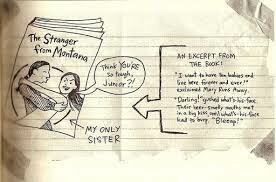 The Stranger
from Montana
Think YOU'RE
so tough,
Junior?!
MY ONLY
SISTER
AN EXCERPT FROM
THE BOOK!
"I want to have ten babies and
live here forever and ever!"
exclaimed Mary Runs Away.
"Darling!" gushed what's-his-face.
Their beer-smelly mouths met
in a big kiss, and what's-his-face
had to burp. "Bleeep!"